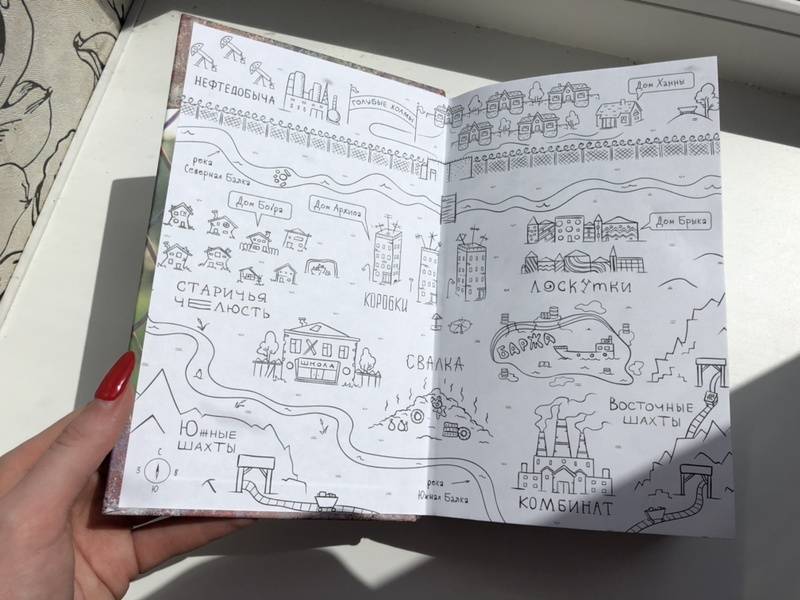 НЕФТЕДОБЫЧА
ГОЛУБЫЕ ХОЛМЫ
Дом Ханны
река
Северная Балка
Дом Бобра
Дом Архипа
Дом Брыка
СТАРИЧЬЯ
ЧЕЛЮСТЬ
КОРОБКИ
ЛОСКУТКИ
ШКОЛА
СВАЛКА
БАРЖА
ЮЖНЫЕ
ШАХТЫ
ВОСТОЧНЫЕ
ШАХТЫ
С
З В
Ю
река
Южная Балка
КОМБИНАТ